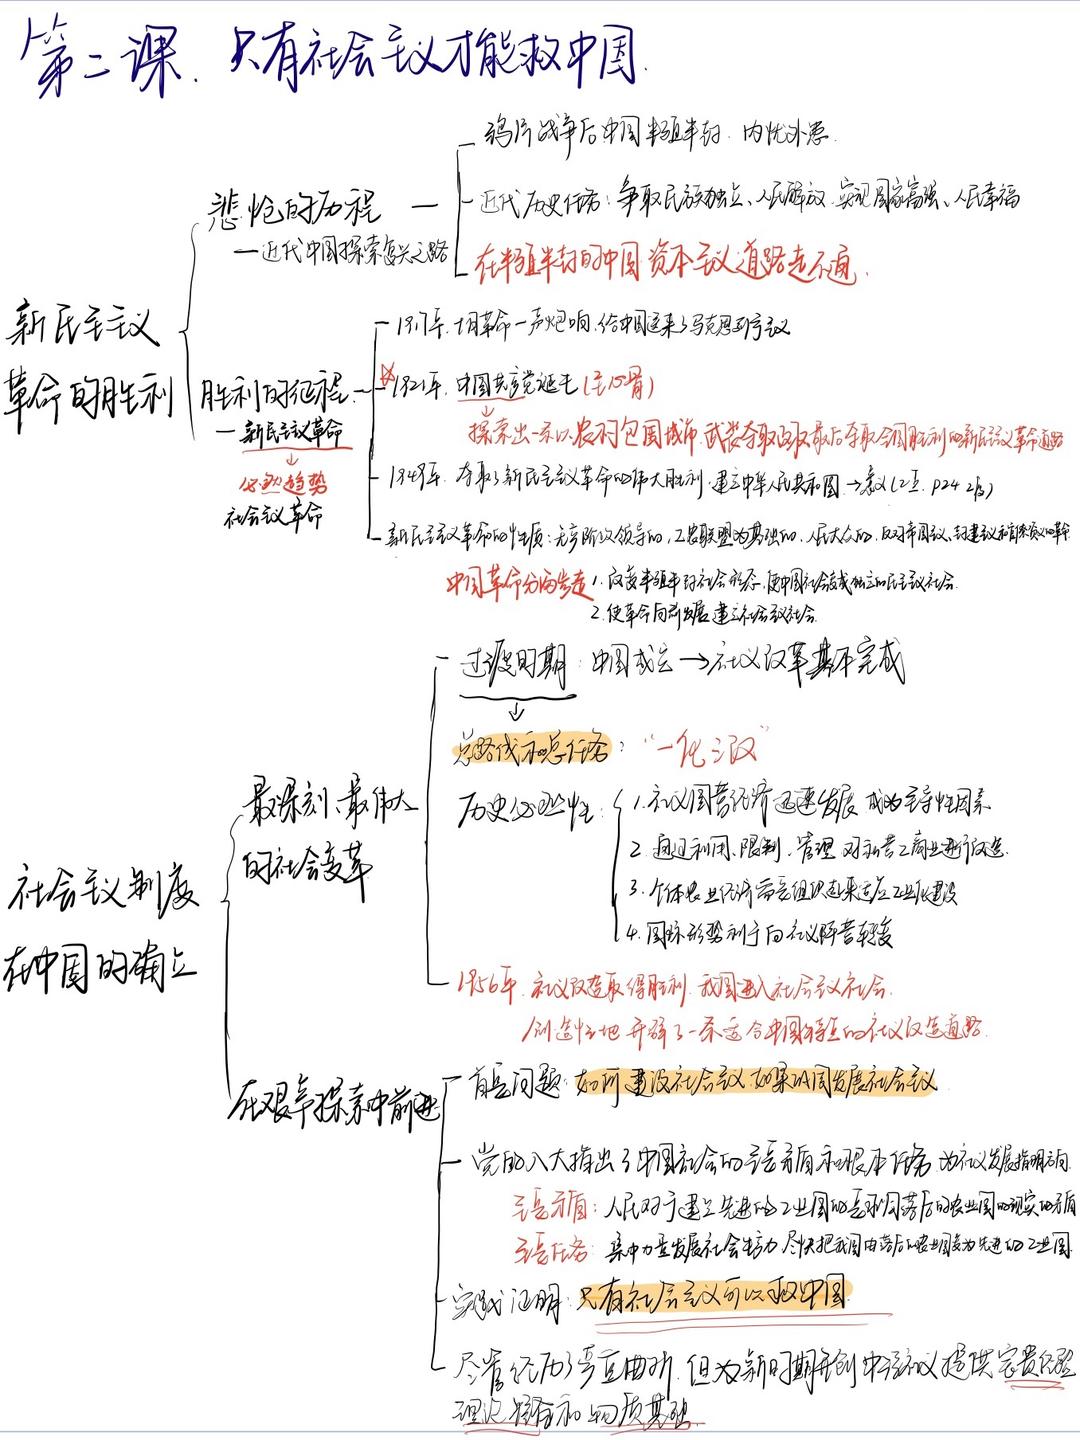 第二课、只有社会主义才能救中国.
鸦片战争后中国半殖半封、内忧外患.
悲怆的历程
近代历史任务：争取民族独立、人民解放、实现国家富强、人民幸福
—近代中国探索复兴之路
在半殖半封的中国资本主义道路走不通.
新民主主义
革命的胜利
1917年.十月革命一声炮响.给中国送来了马克思列宁主义
胜利的征程.
1921年.中国共产党诞生(主心骨)
—新民主主义革命
探索出一条以农村包围城市.武装夺取政权最后夺取全国胜利的新民主义革命道路
必然趋势
1949年.夺取了新民主主义革命的伟大胜利.建立中华人民共和国→意义(2点.P24 2段)
社会主义革命
新民主主义革命的性质：无产阶级领导的,工农联盟为基础的、人民大众的,反对帝国主义、封建主义和官僚资本主义的革命.
中国革命分两步走 1.改变半殖半封社会形态,使中国社会变成独立的民主主义社会.
2.使革命向前发展 建立社会主义社会.
过渡时期：中国成立→社义改革基本完成
总路线和总任务：“一化三改”
最深刻、最伟大
的社会变革
历史必然性：
1.社义国营经济迅速发展 成为主导性因素
2.通过利用、限制、管理对私营工商业进行改造.
3.个体农业经济需要组织起来适应工业化建设
4.国际形势利于向社义阵营转变
社会主义制度
在中国的确立
1956年.社义改造取得胜利.我国进入社会主义社会.
创造性地开辟了一条适合中国特点的社义改造道路.
在艰辛探索中前进
首要问题：如何建设社会主义、如果巩固发展社会主义
党的八大指出了中国社会的主要矛盾和根本任务 为社义发展指明方向.
主要矛盾：人民对于建立先进的工业国的要求同落后的农业国的现实的矛盾
主要任务：集中力量发展社会生产力 尽快把我国由落后的农业国变为先进的工业国.
实践证明：只有社会主义可以救中国.
尽管经历了严重曲折.但为新时期开创中特社义提供宝贵经验
理论准备和物质基础.